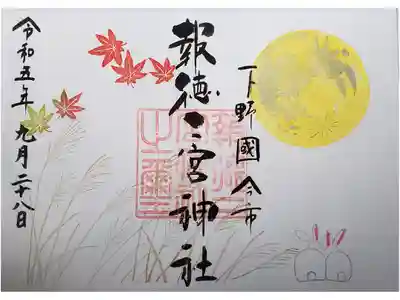 下野國今市
報徳二宮神社
令和五年九月二十八日